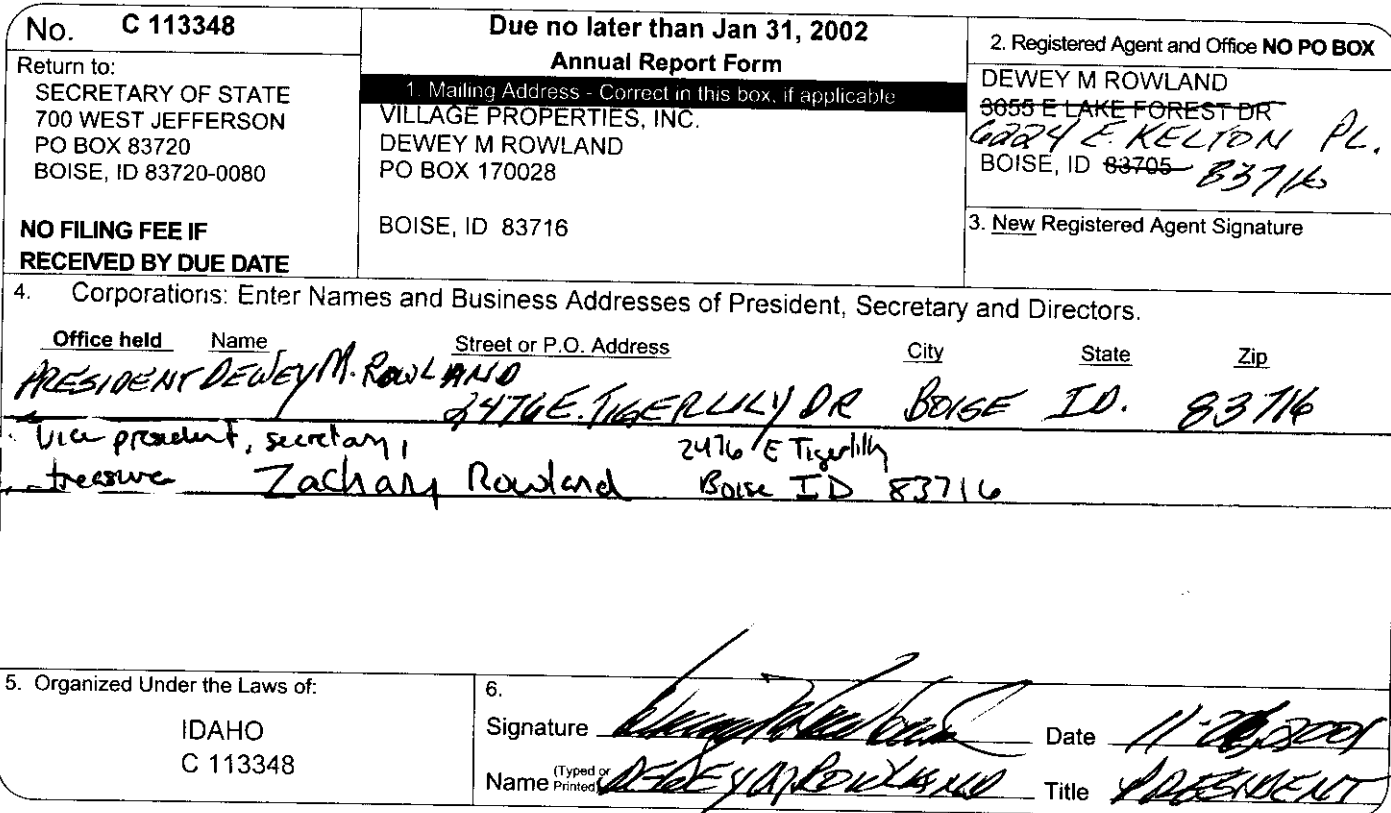 No. C 113348
Return to:
SECRETARY OF STATE
700 WEST JEFFERSON
PO BOX 83720
BOISE, ID 83720-0080
NO FILING FEE IF
RECEIVED BY DUE DATE
Due no later than Jan 31, 2002
Annual Report Form
1. Mailing Address - Correct in this box, if applicable
VILLAGE PROPERTIES, INC.
DEWEY M ROWLAND
PO BOX 170028
BOISE, ID 83716
2. Registered Agent and Office NO PO BOX
DEWEY M ROWLAND
3055 E LAKE FOREST DR
6224 E. KELTON PL.
BOISE, ID 83705 83716
3. New Registered Agent Signature
4. Corporations: Enter Names and Business Addresses of President, Secretary and Directors.
Office held Name Street or P.O. Address City State Zip
PRESIDENT DEWEY M. ROWLAND
2476 E. TIGERLILY DR BOISE ID. 83716
Vice president, secretary, 2476 E Tigerlilly
treasure Zachary Rowland Boise ID 83716
5. Organized Under the Laws of:
IDAHO
C 113348
6.
Signature Date
Name (Typed or Printed) DEWEY M ROWLAND Title PRESIDENT